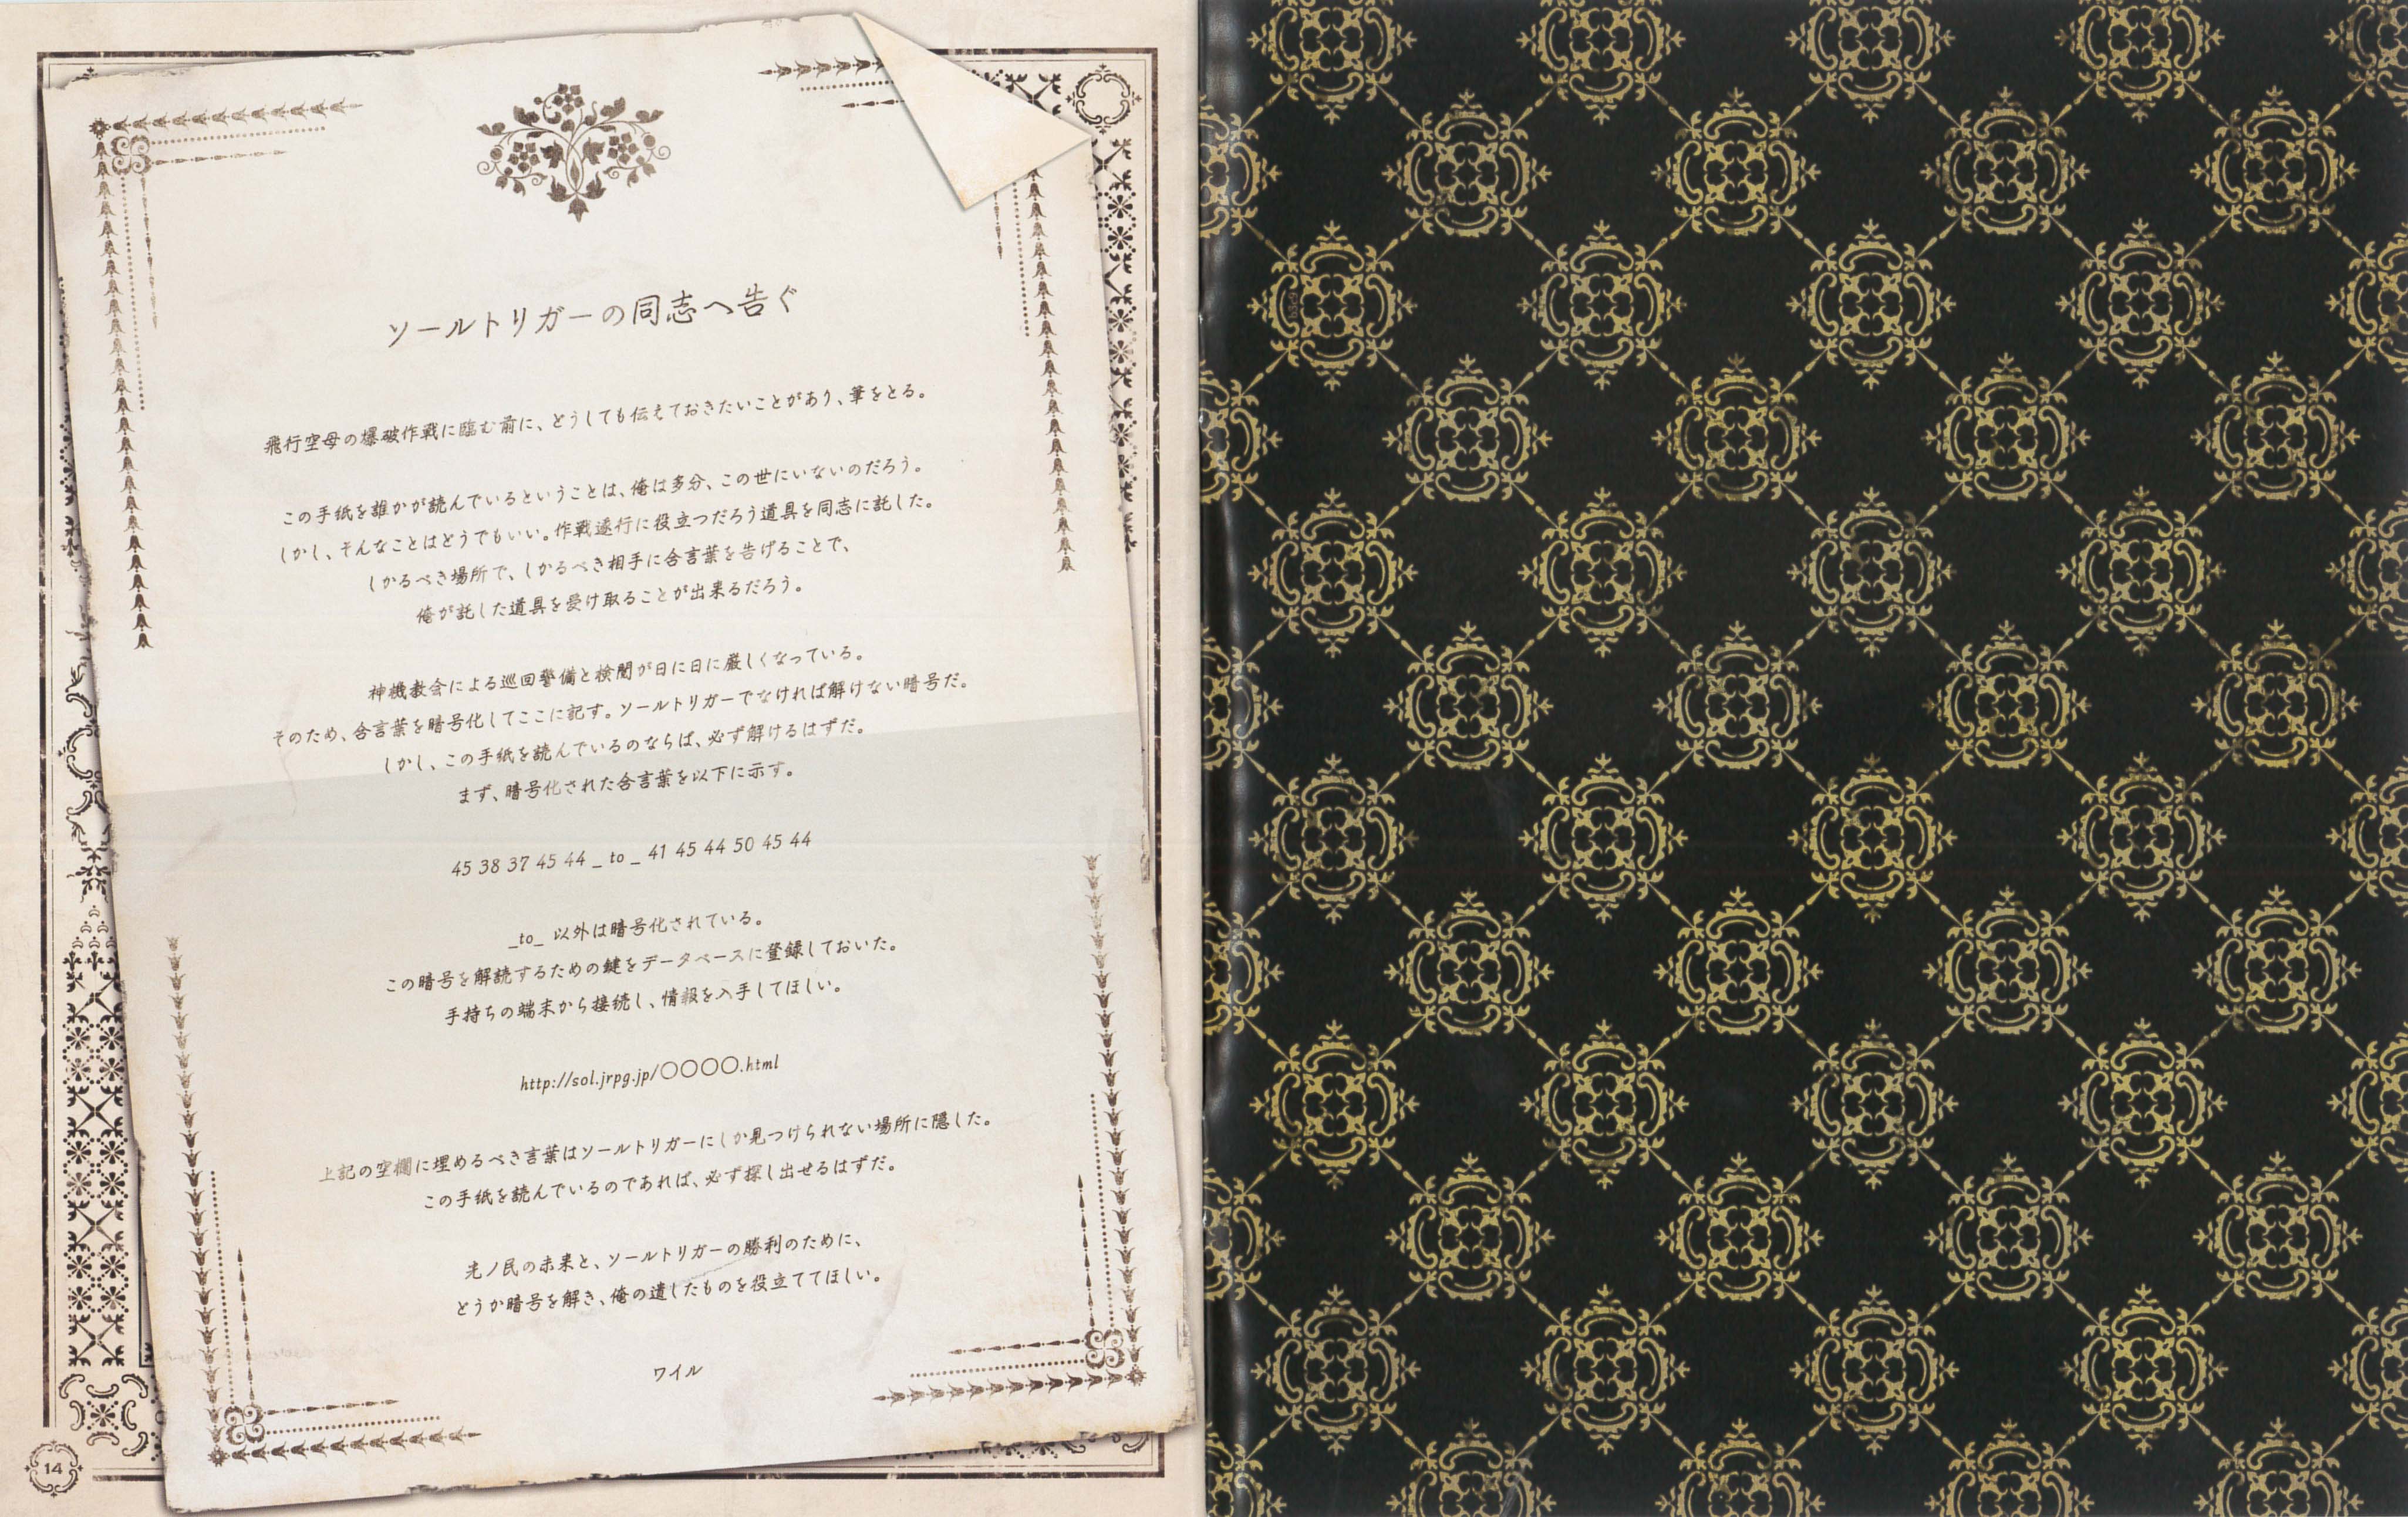 ソールトリガーの同志へ告ぐ
飛行空母の爆破作戦に臨む前に、どうしても伝えておきたいことがあり、筆をとる。
この手紙を誰かが読んでいるということは、俺は多分、この世にいないのだろう。
しかし、そんなことはどうでもいい。作戦遂行に役立つだろう道具を同志に託した。
しかるべき場所で、しかるべき相手に合言葉を告げることで、
俺が託した道具を受け取ることが出来るだろう。
神機教会による巡回警備と検閲が日に日に厳しくなっている。
そのため、合言葉を暗号化してここに記す。ソールトリガーでなければ解けない暗号だ。
しかし、この手紙を読んでいるのならば、必ず解けるはずだ。
まず、暗号化された合言葉を以下に示す。
45 38 37 45 44 _ to _ 41 45 44 50 45 44
_to_ 以外は暗号化されている。
この暗号を解読するための鍵をデータベースに登録しておいた。
手持ちの端末から接続し、情報を入手してほしい。
http://sol.jrpg.jp/○○○○.html
上記の空欄に埋めるべき言葉はソールトリガーにしか見つけられない場所に隠した。
この手紙を読んでいるのであれば、必ず探し出せるはずだ。
光ノ民の未来と、ソールトリガーの勝利のために、
どうか暗号を解き、俺の遺したものを役立ててほしい。
ワイル
14